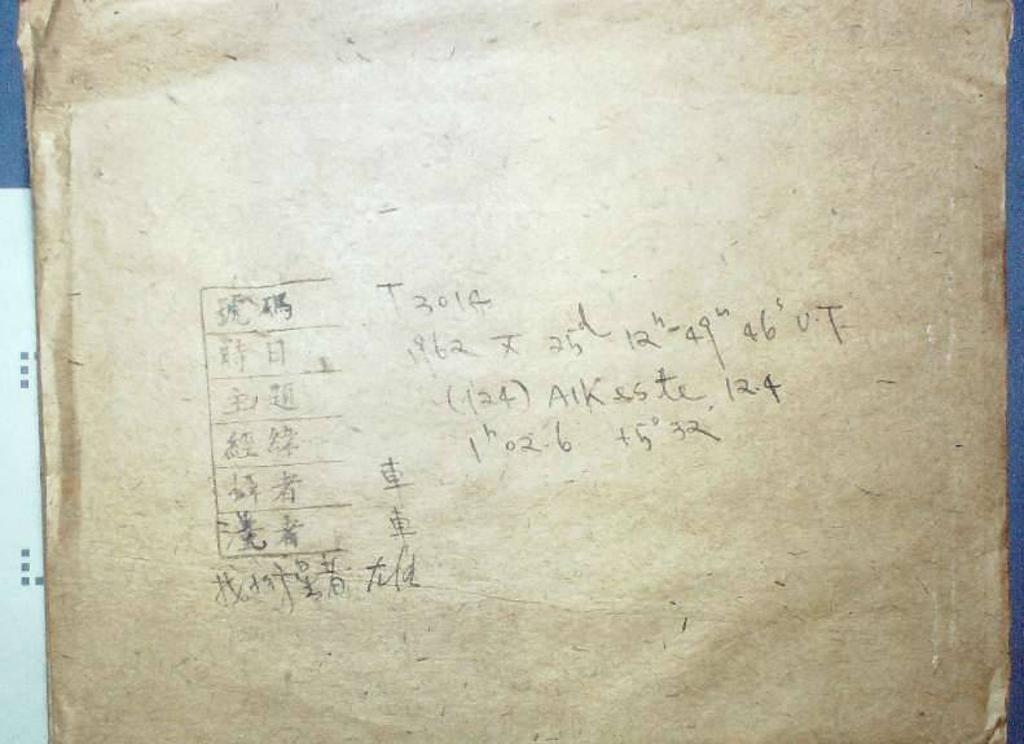 號碼 T 3014
時日 1962 X 25ᵈ 12ʰ-49ᵐ 46ˢ U.T.
主題 (124) AlKeste, 12.4
經緯 1ʰ02.6 +5°32
者 車
者 車
找 星者